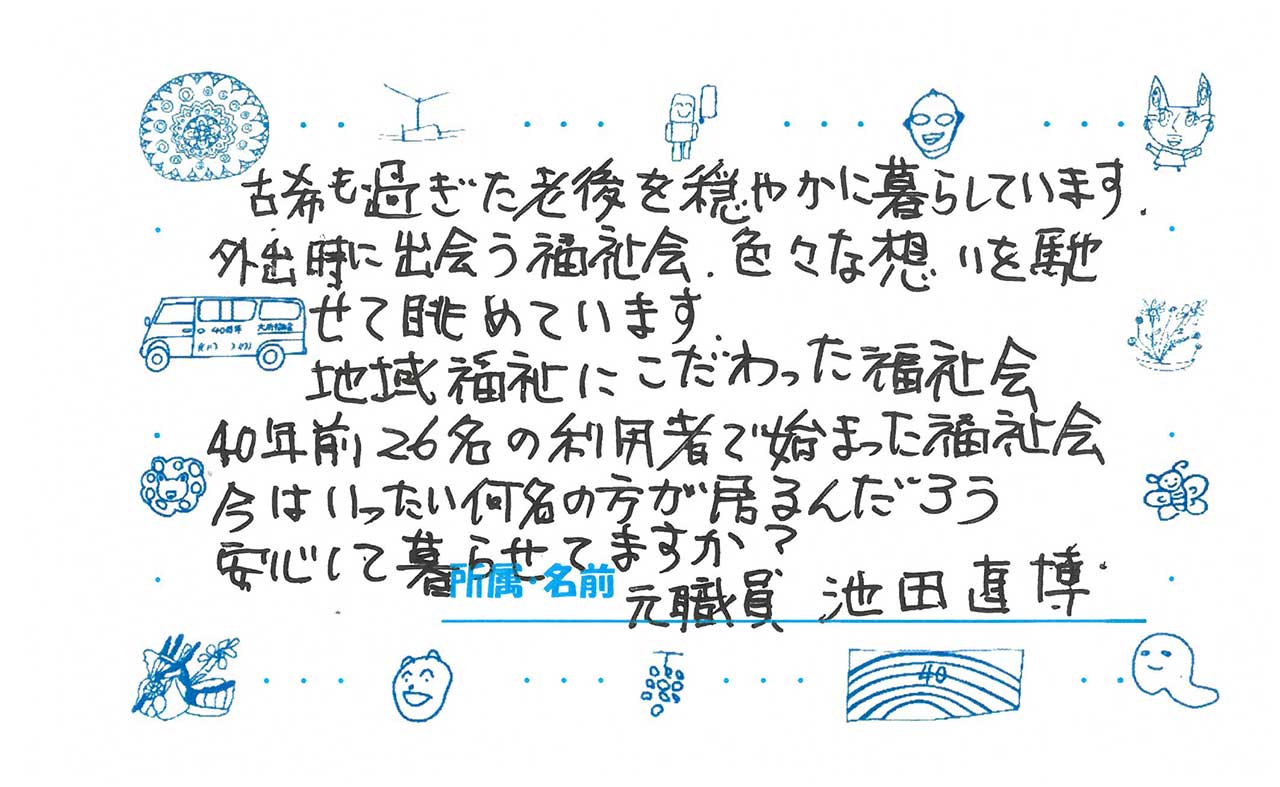 古希も過ぎた老後を穏やかに暮らしています.
外出時に出会う福祉会.色々な想いを馳
せて眺めています.
40周年
地域福祉にこだわった福祉会
40年前26名の利用者で始まった福祉会
今はいったい何名の方が居るんだろう
安心して暮らせてますか?
所属・名前 元職員 池田直博
40